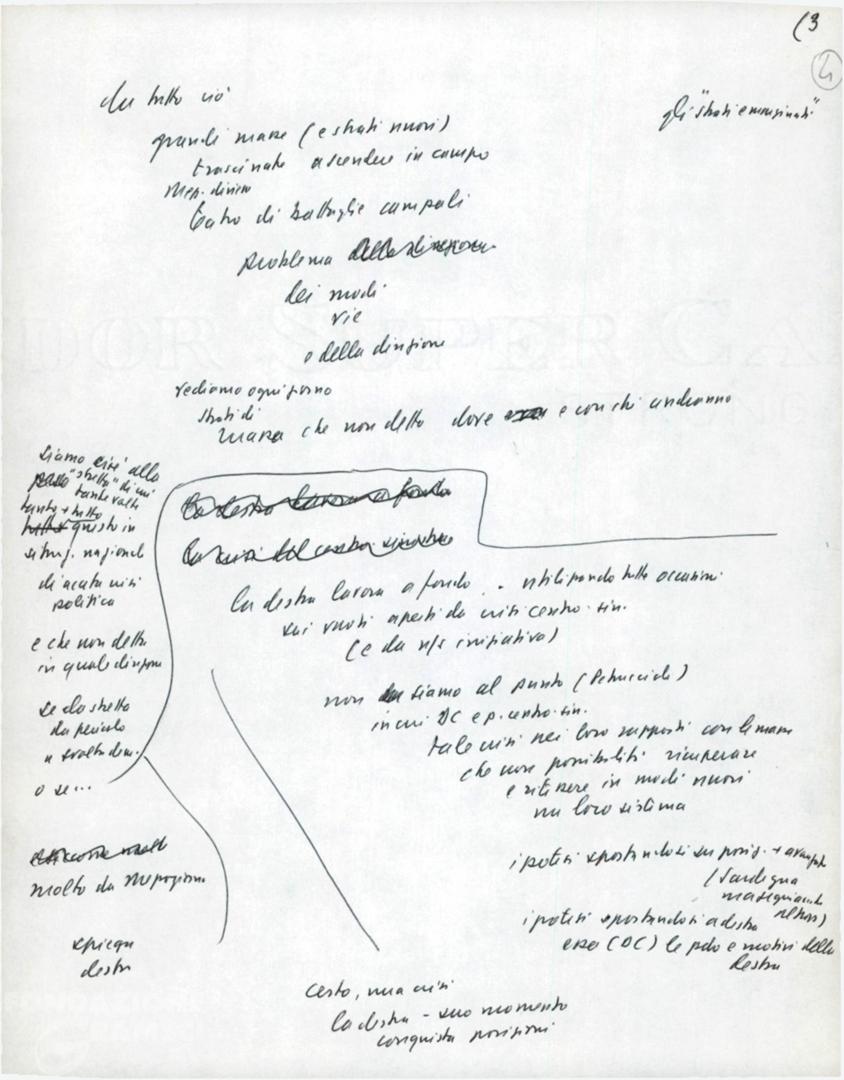 (3
4
da tutto ciò
gli "strati emarginati"
grandi masse (e strati nuovi)
trascinate a scendere in campo
Mezz. diviene
teatro di battaglie campali
problema della direzione
dei modi
vie
o della direzione
vediamo ogni giorno
strati di
massa che non detto dove e con chi andranno
siamo cioè allo
"stretto" di cui
tante volte
tanto + tutto
questo in
situaz. nazionale
di acuta crisi
politica
e che non detto
in quale direzione
se da stretto
da pericolo
a svolta dem.
o se...
la destra lavora a fondo
la crisi del centro sinistra
la destra lavora a fondo .. utilizzando tutte occasioni
sui vuoti aperti da crisi centro-sin.
(e da n/s iniziativa)
non siamo al punto (Petruccioli)
in cui DC e p. centro-sin.
tale crisi nei loro rapporti con le masse
che non possibilità recuperare
e ritessere in modi nuovi
un loro sistema
ipotesi spostandosi su posiz. + avanzate
(Sardegna
ma
)
ipotesi spostandosi a destra
essa (DC) le e motivi della
destra
molto da Mezzogiorno
spiega
destra
certo, una crisi
la destra - suo momento
conquista posizioni